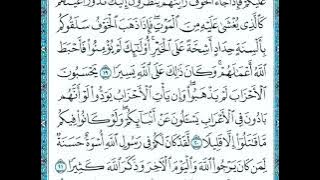 عَلَيْكُمْ فَإِذَا جَاءَ الْخَوْفُ رَأَيْتَهُمْ يَنظُرُونَ إِلَيْكَ تَدُورُ أَعْيُنُهُمْ
كَالَّذِي يُغْشَىٰ عَلَيْهِ مِنَ الْمَوْتِ فَإِذَا ذَهَبَ الْخَوْفُ سَلَقُوكُم
بِأَلْسِنَةٍ حِدَادٍ أَشِحَّةً عَلَى الْخَيْرِ أُولَٰئِكَ لَمْ يُؤْمِنُوا فَأَحْبَطَ
اللَّهُ أَعْمَالَهُمْ وَكَانَ ذَٰلِكَ عَلَى اللَّهِ يَسِيرًا ١٩ يَحْسَبُونَ
الْأَحْزَابَ لَمْ يَذْهَبُوا وَإِن يَأْتِ الْأَحْزَابُ يَوَدُّوا لَوْ أَنَّهُم
بَادُونَ فِي الْأَعْرَابِ يَسْأَلُونَ عَنْ أَنبَائِكُمْ وَلَوْ كَانُوا فِيكُم
مَّا قَاتَلُوا إِلَّا قَلِيلًا ٢٠ لَّقَدْ كَانَ لَكُمْ فِي رَسُولِ اللَّهِ أُسْوَةٌ حَسَنَةٌ
لِّمَن كَانَ يَرْجُو اللَّهَ وَالْيَوْمَ الْآخِرَ وَذَكَرَ اللَّهَ كَثِيرًا ٢١